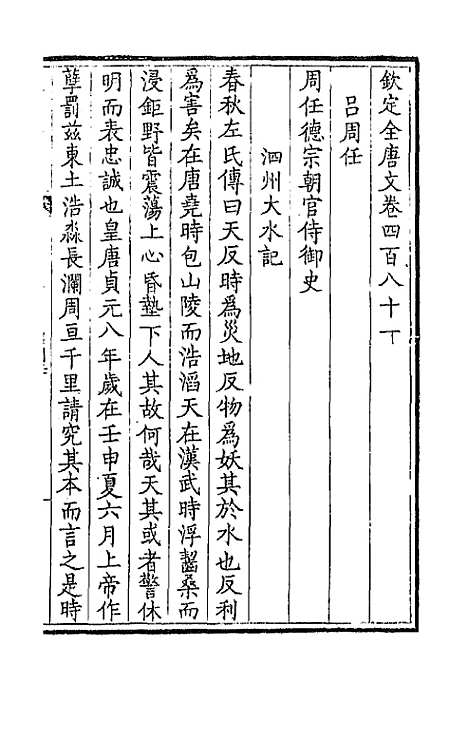 欽定全唐文卷四百八十一
呂周任
周任德宗朝官侍御史
泗州大水記
春秋左氏傳曰天反時為災地反物為妖其於水也反利
為害矣在唐堯時包山陵而浩滔天在漢武時浮齧桑而
浸鉅野皆震蕩上心昏墊下人其故何哉天其或者警休
明而表忠誠也皇唐貞元八年歲在壬申夏六月上帝作
孽罰茲東土浩淼長瀾周亘千里請究其本而言之是時